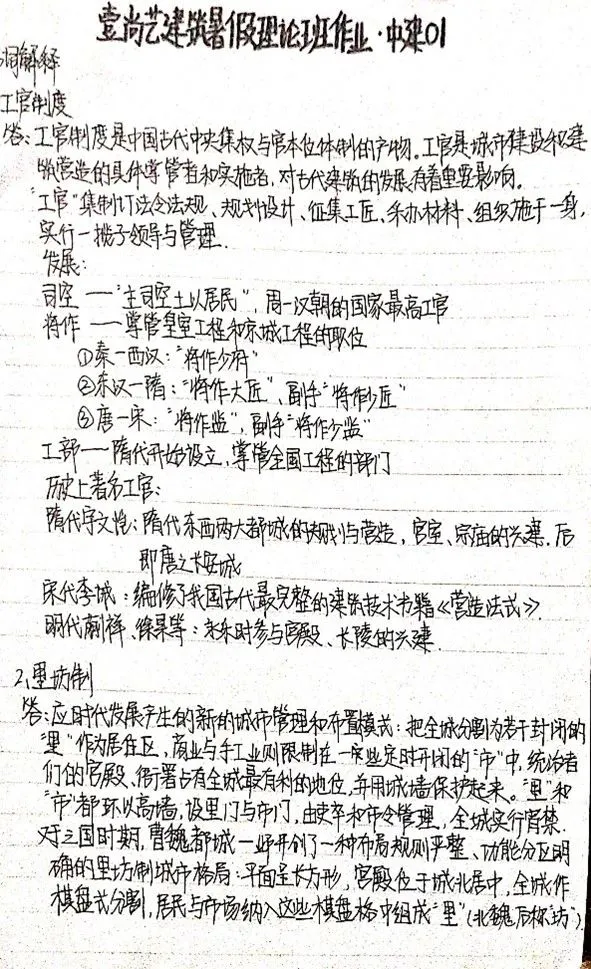 壹尚艺建筑暑假理论班作业·中建01
词解释
工官制度
答:工官制度是中国古代中央集权与官本位体制的产物。工官是城市建设和建
筑营造的具体掌管者和实施者,对古代建筑的发展有着重要影响。
"工官"集制订法令法规、规划设计、征集工匠、采办材料、组织施于一身,
实行一揽子领导与管理.
发展:
司空——"主司空土以居民",周—汉朝的国家最高工官
将作——掌管皇室工程和京城工程的职位
①秦—西汉:"将作少府"
②东汉—隋:"将作大匠"、副手"将作少匠"
③唐—宋:"将作监",副手"将作少监"
工部——隋代开始设立,掌管全国工程的部门
历史上著名工官:
隋代宇文恺:隋代东西两大都城的规划与营造,宫室、宗庙的兴建.后
即唐之长安城
宋代李诫:编修了我国古代最完整的建筑技术书籍《营造法式》.
明代蒯祥、徐杲等:永乐时参与宫殿、长陵的兴建.
2.里坊制
答:应时代发展产生的新的城市管理和布置模式:把全城分割为若干封闭的
"里"作为居住区,商业与手工业则限制在一些定时开闭的"市"中,统治者
们的宫殿、衙署占有全城最有利的地位,并用城墙保护起来。"里"和
"市"都环以高墙,设里门与市门,由吏卒和市令管理,全城实行宵禁.
对三国时期,曹魏都城—邺开创了一种布局规则严整、功能分区明
确的里坊制城市格局:平面呈长方形,宫殿位于城北居中,全城作
棋盘式分割,居民与市场纳入这些棋盘格中组成"里"(北魏后称"坊").